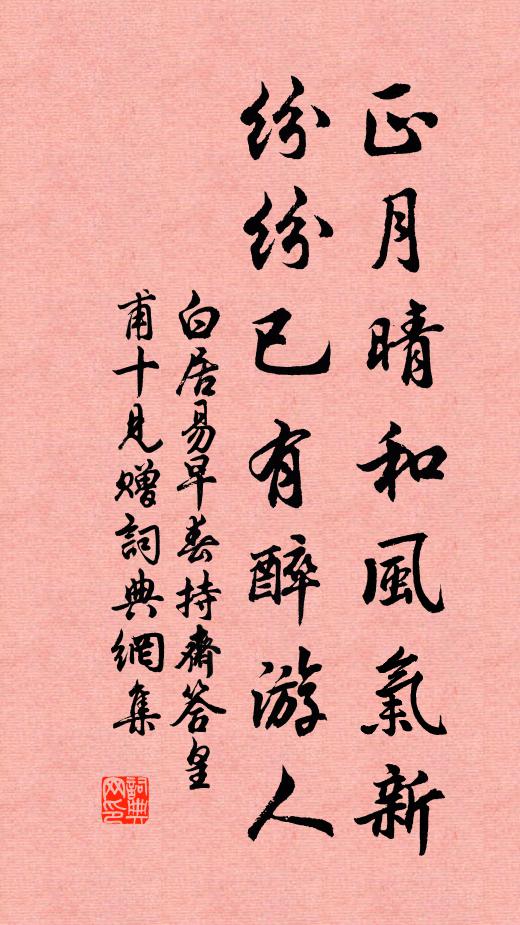 正月晴和風氣新
紛紛已有醉游人
白居易早春持齋答皇
甫十見贈詞典網集
詞典
网印